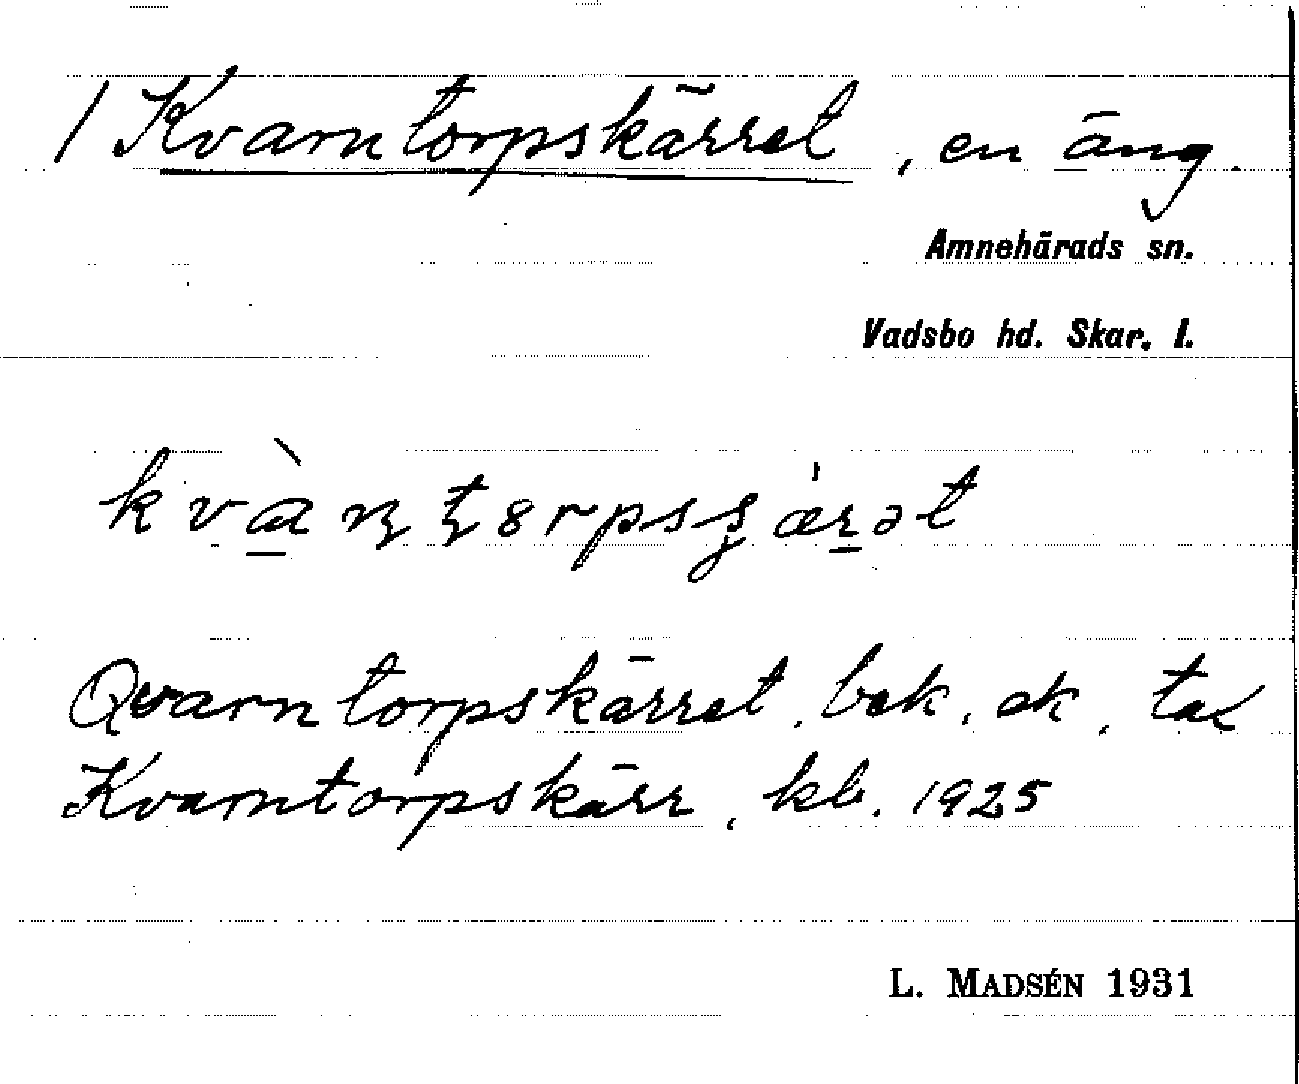 / Kvarntorpskärret, en äng.
Amnehärads sn.
Vadsbo hd. Skar. l.
Qvarntorpskärret, bek. ck, tax
Kvarntorpskärr, kb. 1925
L. MADSÉN 1931